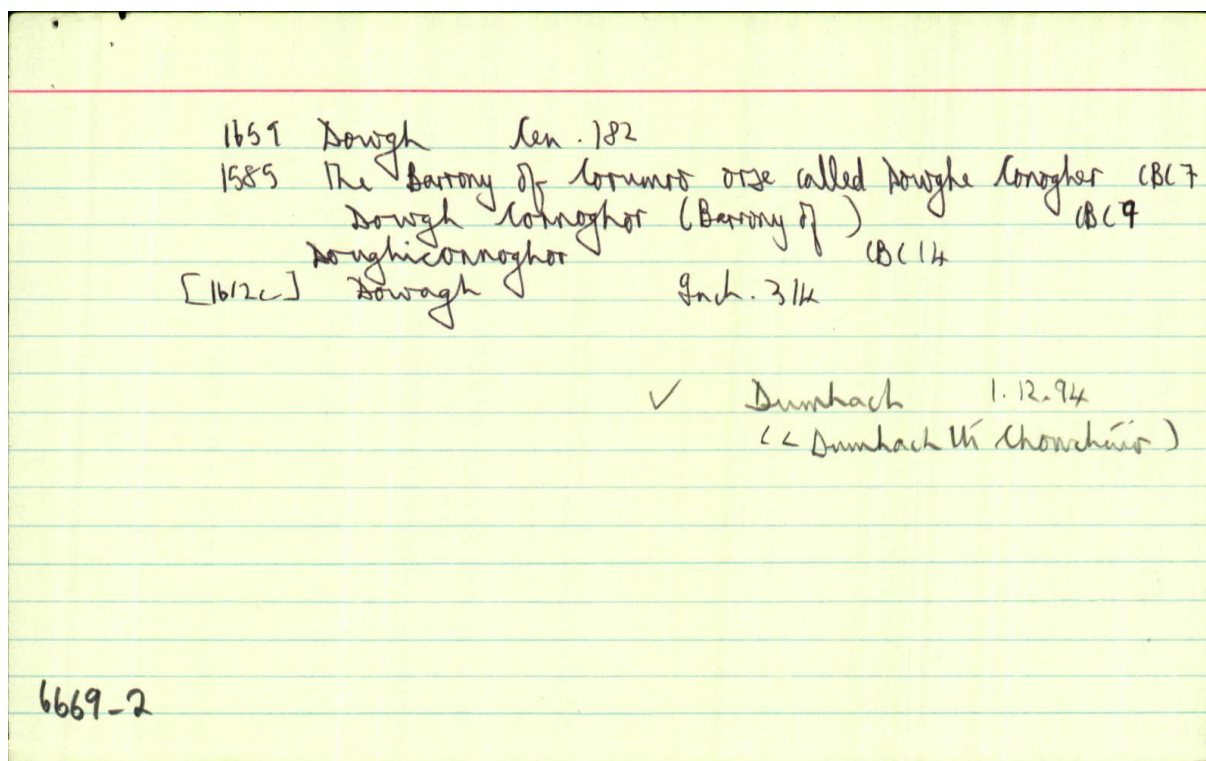 1659 Dowgh Cen. 182
1585 The Barrony of Corumro orse called Dowghe Conogher CBC 7
Dowgh Connoghor (Barrony of) CBC 9
Doughiconnoghor CBC 14
[1612c] Dowagh Inch. 314
✓ Dumhach 1.12.94
(< Dumhach Uí Chonchúir)
6669-2